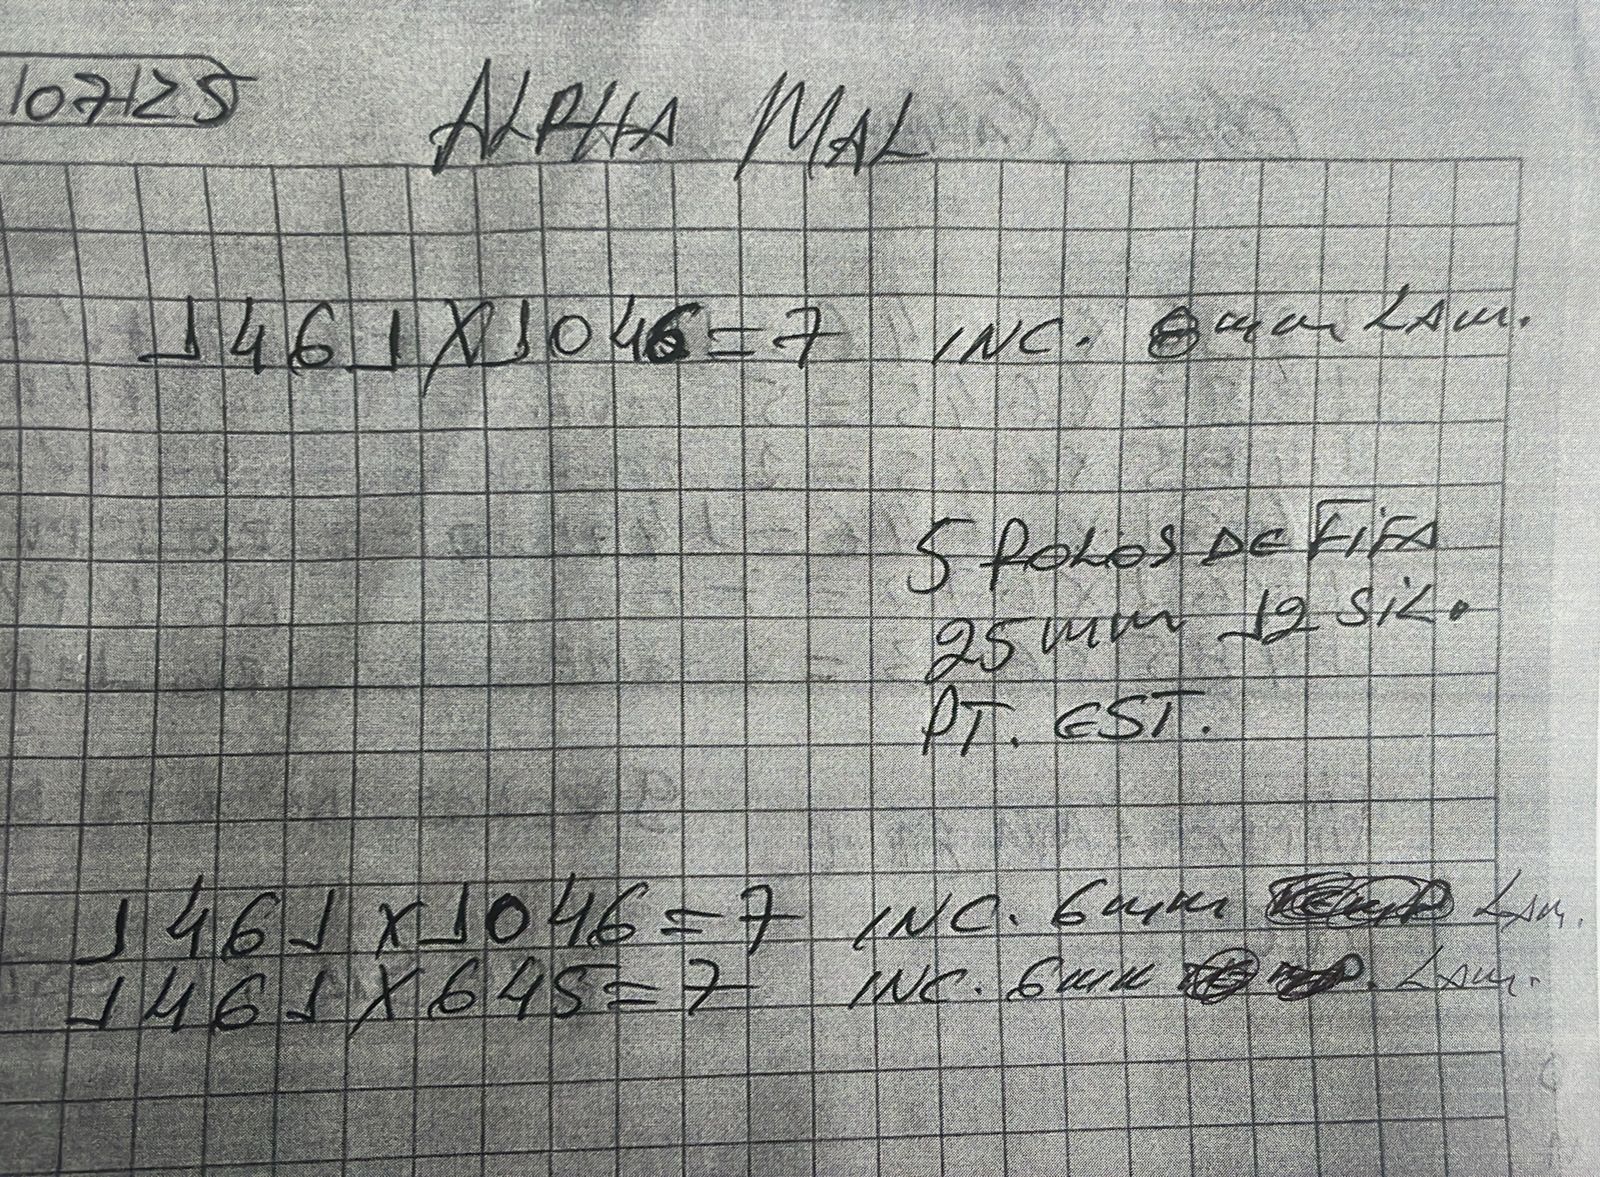 107125
ALPHA MAL
1461 X 1046 = 7 INC. 6mm LAM.
5 ROLOS DE FIFA
25mm 12 SIL.
PT. EST.
1461 X 1046 = 7 INC. 6mm LAM.
1461 X 645 = 7 INC. 6mm LAM.